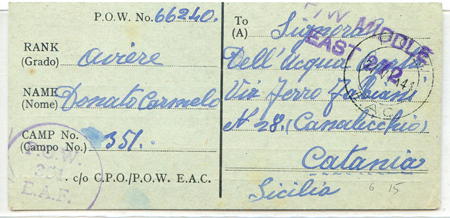 P.O.W. No. 66240.
RANK
(Grado) Aviere
NAME
(Nome) Donato Carmelo
CAMP No.
(Campo No.) 351.
c/o C.P.O./P.O.W. E.A.C.
P.O.W.
E.A.F.
To
(A) Signora
Dell'Acqua
Via Ferro Fabiani
N 28. (Canalicchio)
Catania
Sicilia
P/W MIDDLE
EAST
6 15